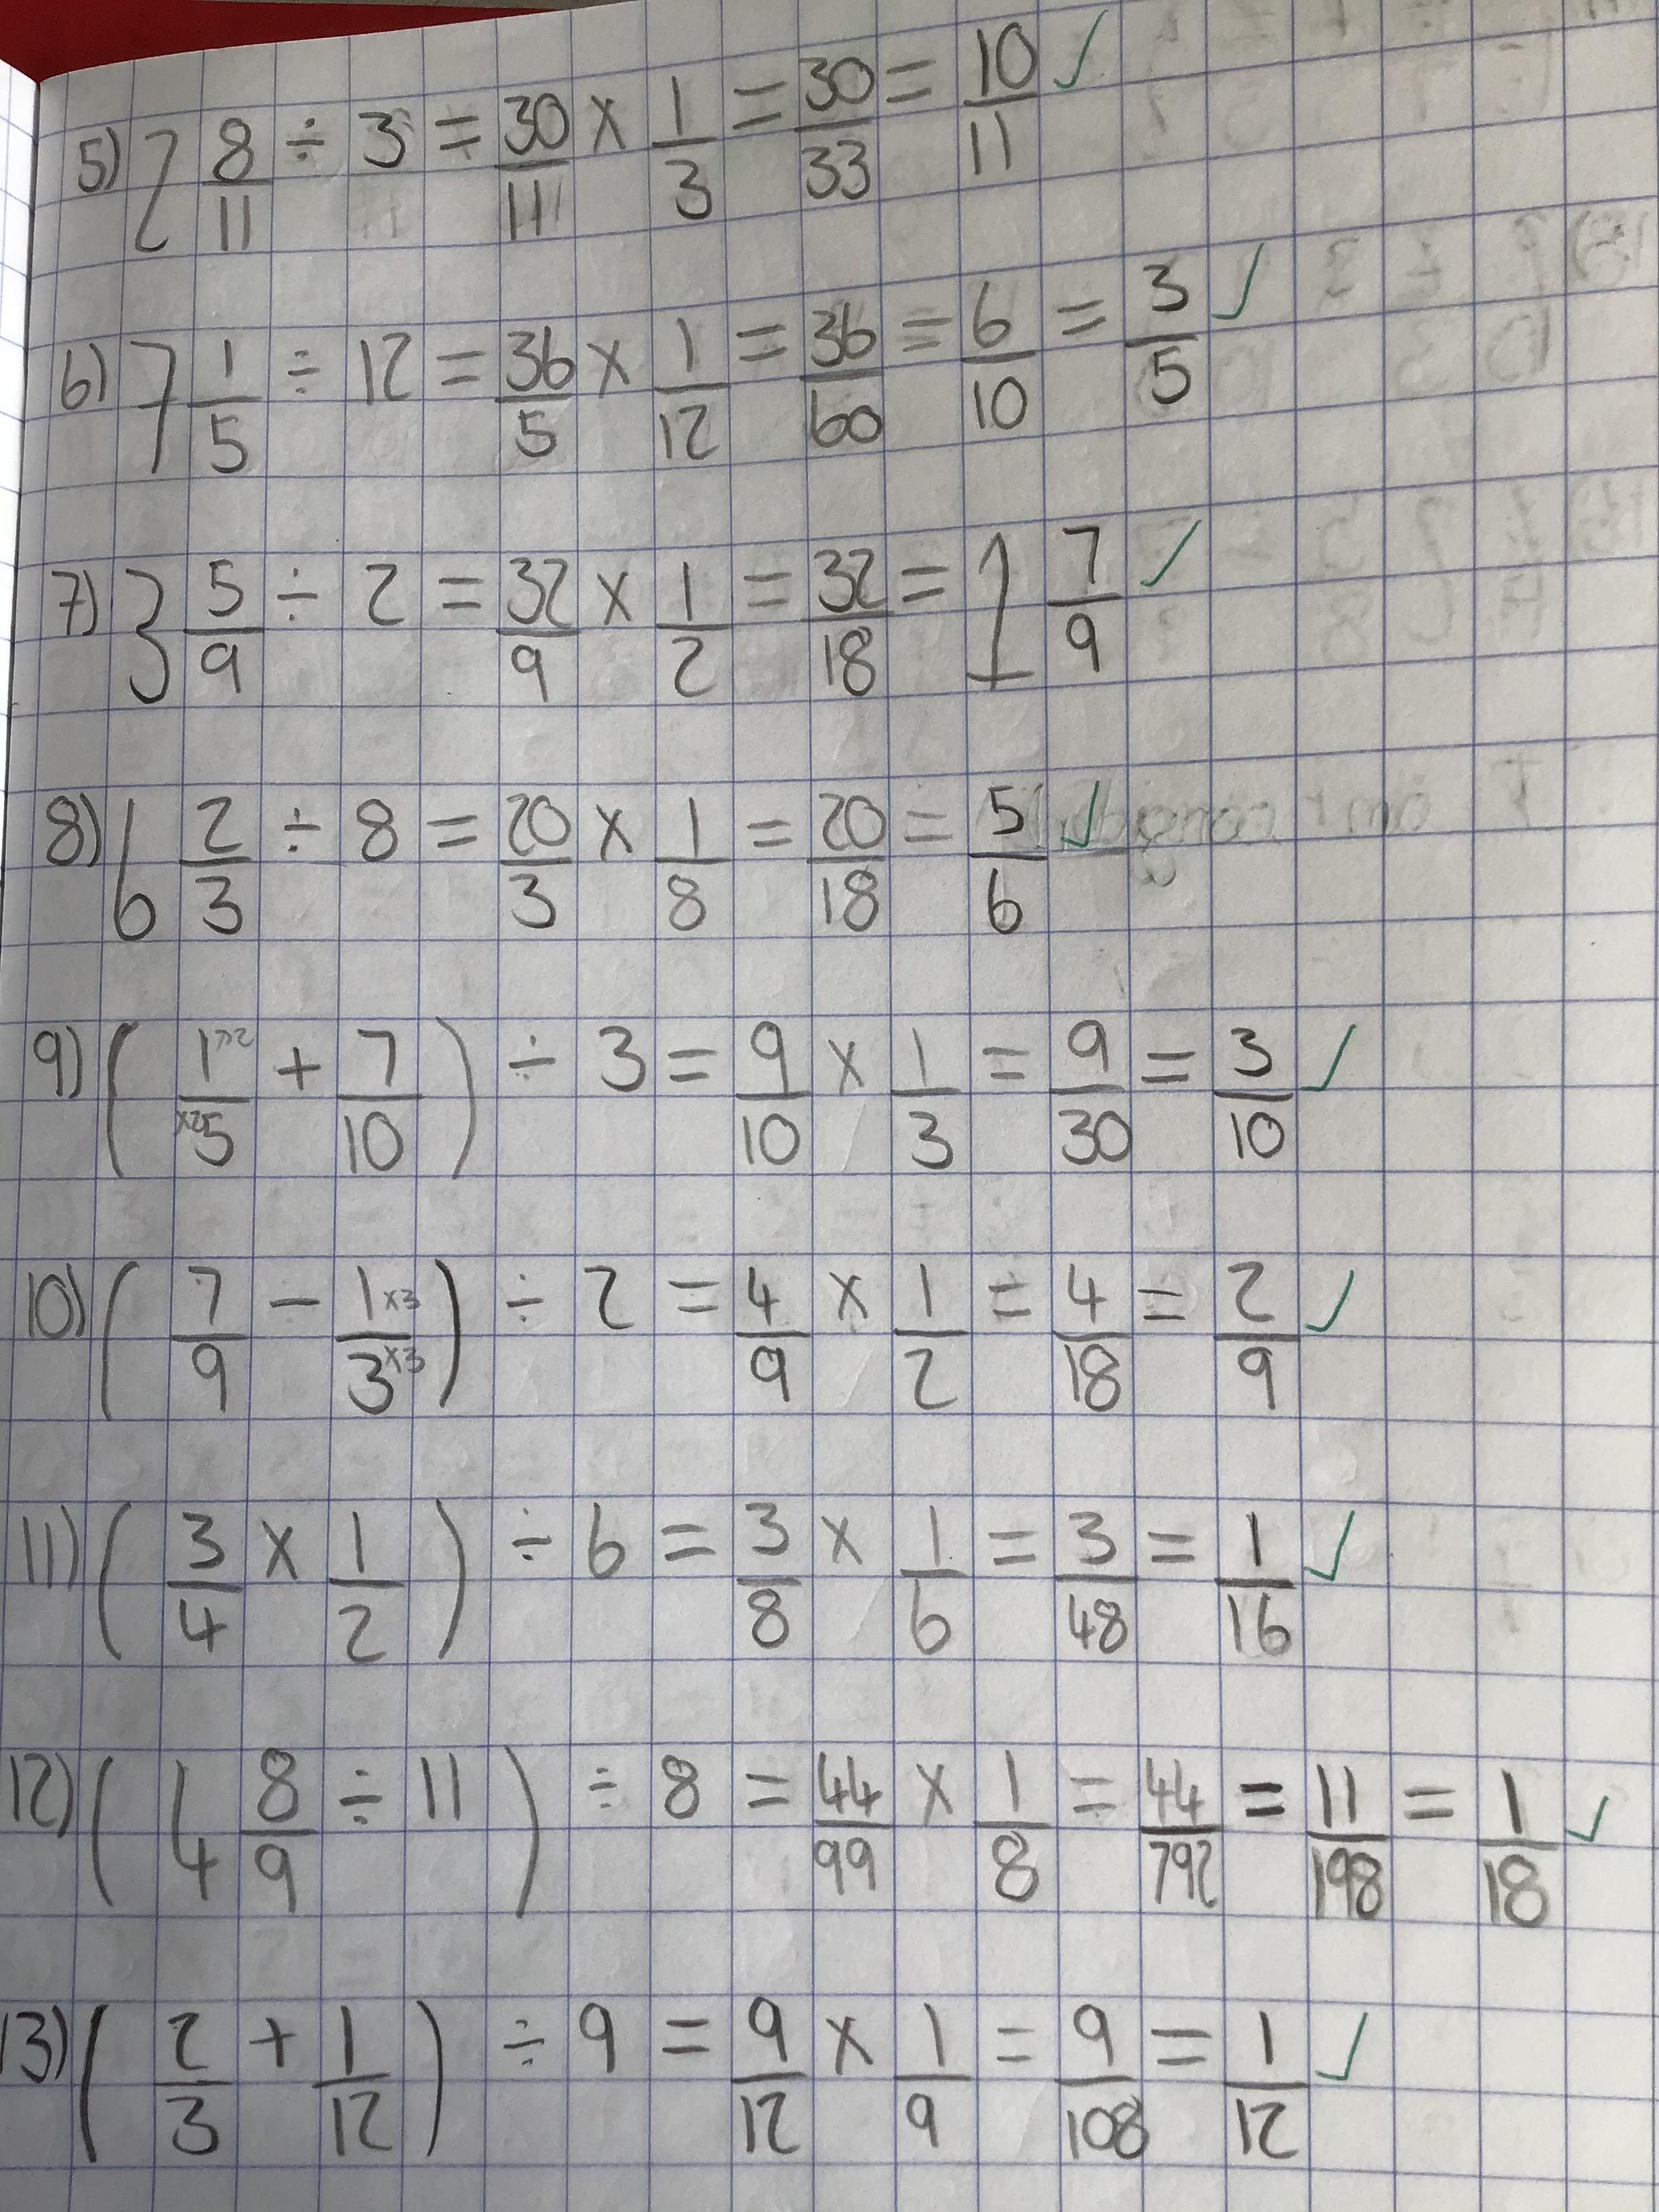 5) 2 8/11 ÷ 3 = 30/11 × 1/3 = 30/33 = 10/11 ✓
6) 7 1/5 ÷ 12 = 36/5 × 1/12 = 36/60 = 6/10 = 3/5 ✓
7) 3 5/9 ÷ 2 = 32/9 × 1/2 = 32/18 = 1 7/9 ✓
8) 6 2/3 ÷ 8 = 20/3 × 1/8 = 20/18 = 5/6 ✓
9) (1×2/×25 + 7/10) ÷ 3 = 9/10 × 1/3 = 9/30 = 3/10 ✓
10) (7/9 − 1×3/3×3) ÷ 2 = 4/9 × 1/2 = 4/18 = 2/9 ✓
11) (3/4 × 1/2) ÷ 6 = 3/8 × 1/6 = 3/48 = 1/16 ✓
12) (4 8/9 ÷ 11) ÷ 8 = 44/99 × 1/8 = 44/792 = 11/198 = 1/18 ✓
13) (2/3 + 1/12) ÷ 9 = 9/12 × 1/9 = 9/108 = 1/12 ✓